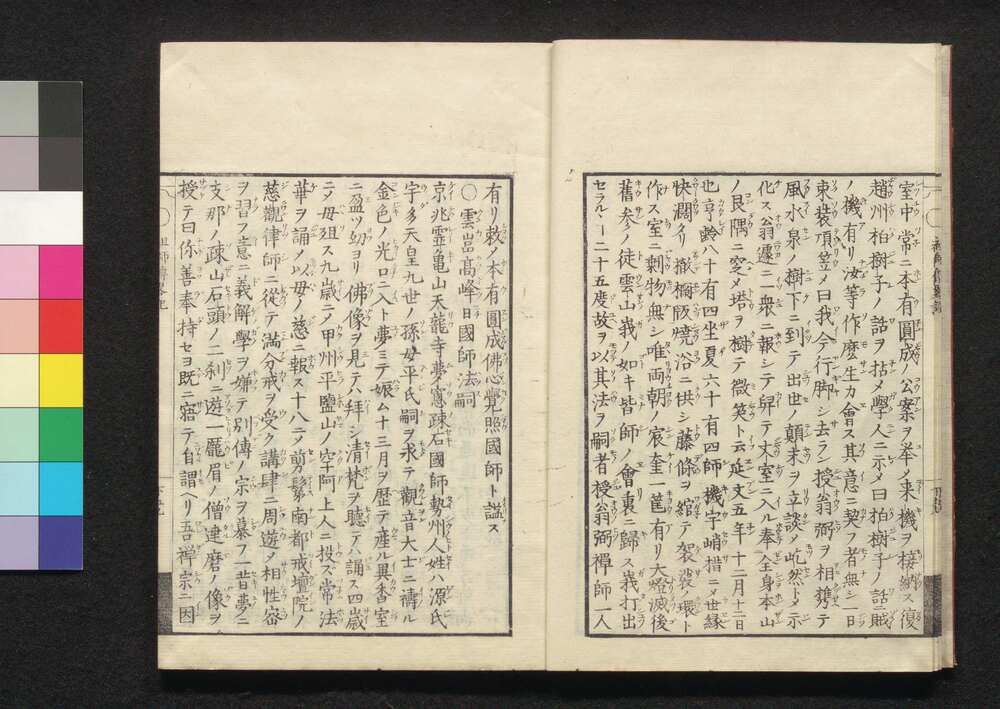 室中常ニ本有圓成ノ公案ヲ举ノ来機ヲ接納ス復
趙州柏樹子ノ話ヲ拈メ學人ニ示メ曰柏樹子ノ話ニ賊
ノ機有リ汝等作麼生カ會ス其意ニ契フ者無シ一日
束裝項笠メ曰我今行脚シ去ラン授翁弼ヲ相携テ
風水泉ノ樹下ニ到テ出世ノ顛末ヲ立談メ屹然トメ示
化ス翁遽ニ衆ニ報シテ舁テ丈室ニ入ル奉全身本山
ノ艮隅ニ窆メ塔ヲ樹テ微笑ト云延文五年十二月十二日
也享齡八十有四坐夏六十有四師機宇峭措ニメ世緣
快濶タリ撤欄販燒浴ニ供シ藤條ヲ綰テ袈裟環ト
作ス室ニ剰物無シ唯両朝ノ宸奎一筐有リ大燈滅後
舊参ノ徒雲山峩ノ如キ皆師ノ會裏ニ歸ス峩打出
セラルヿ二十五度故ヲ以其法ヲ嗣者授翁弼禪師一人
有リ敕ノ本有圓成佛心覺照國師ト謚ス
〇雲嵓高峰日國師法嗣
京兆霊亀山天龍寺夢窻疎石國師勢州人姓ハ源氏
宇多天皇九世ノ孫母平氏嗣ヲ求テ觀音大士ニ禱ル
金色ノ光口ニ入ト夢ミテ娠ム十三月ヲ歴テ產ル異香室
ニ盈ツ幼ヨリ佛像ヲ見テハ拜シ清梵ヲ聽テハ誦ス四歳
ニノ母殂ス九歳ニノ甲州平鹽山ノ空阿上人ニ投ズ常法
華ヲ誦ノ以母ノ慈ニ報ス十八ニノ剪髮南都戒壇院ノ
慈觀律師ニ從テ滿分戒ヲ受ク講肆ニ周遊メ相性密
ヲ習フ意ニ義解學ヲ嫌テ別傳ノ宗ヲ慕フ一昔夢ニ
支那ノ疎山石頭ノ二刹ニ遊一厖眉ノ僧達磨ノ像ヲ
授テ曰你善奉持セヨ既ニ寤テ自謂ヘリ吾禪宗ニ因